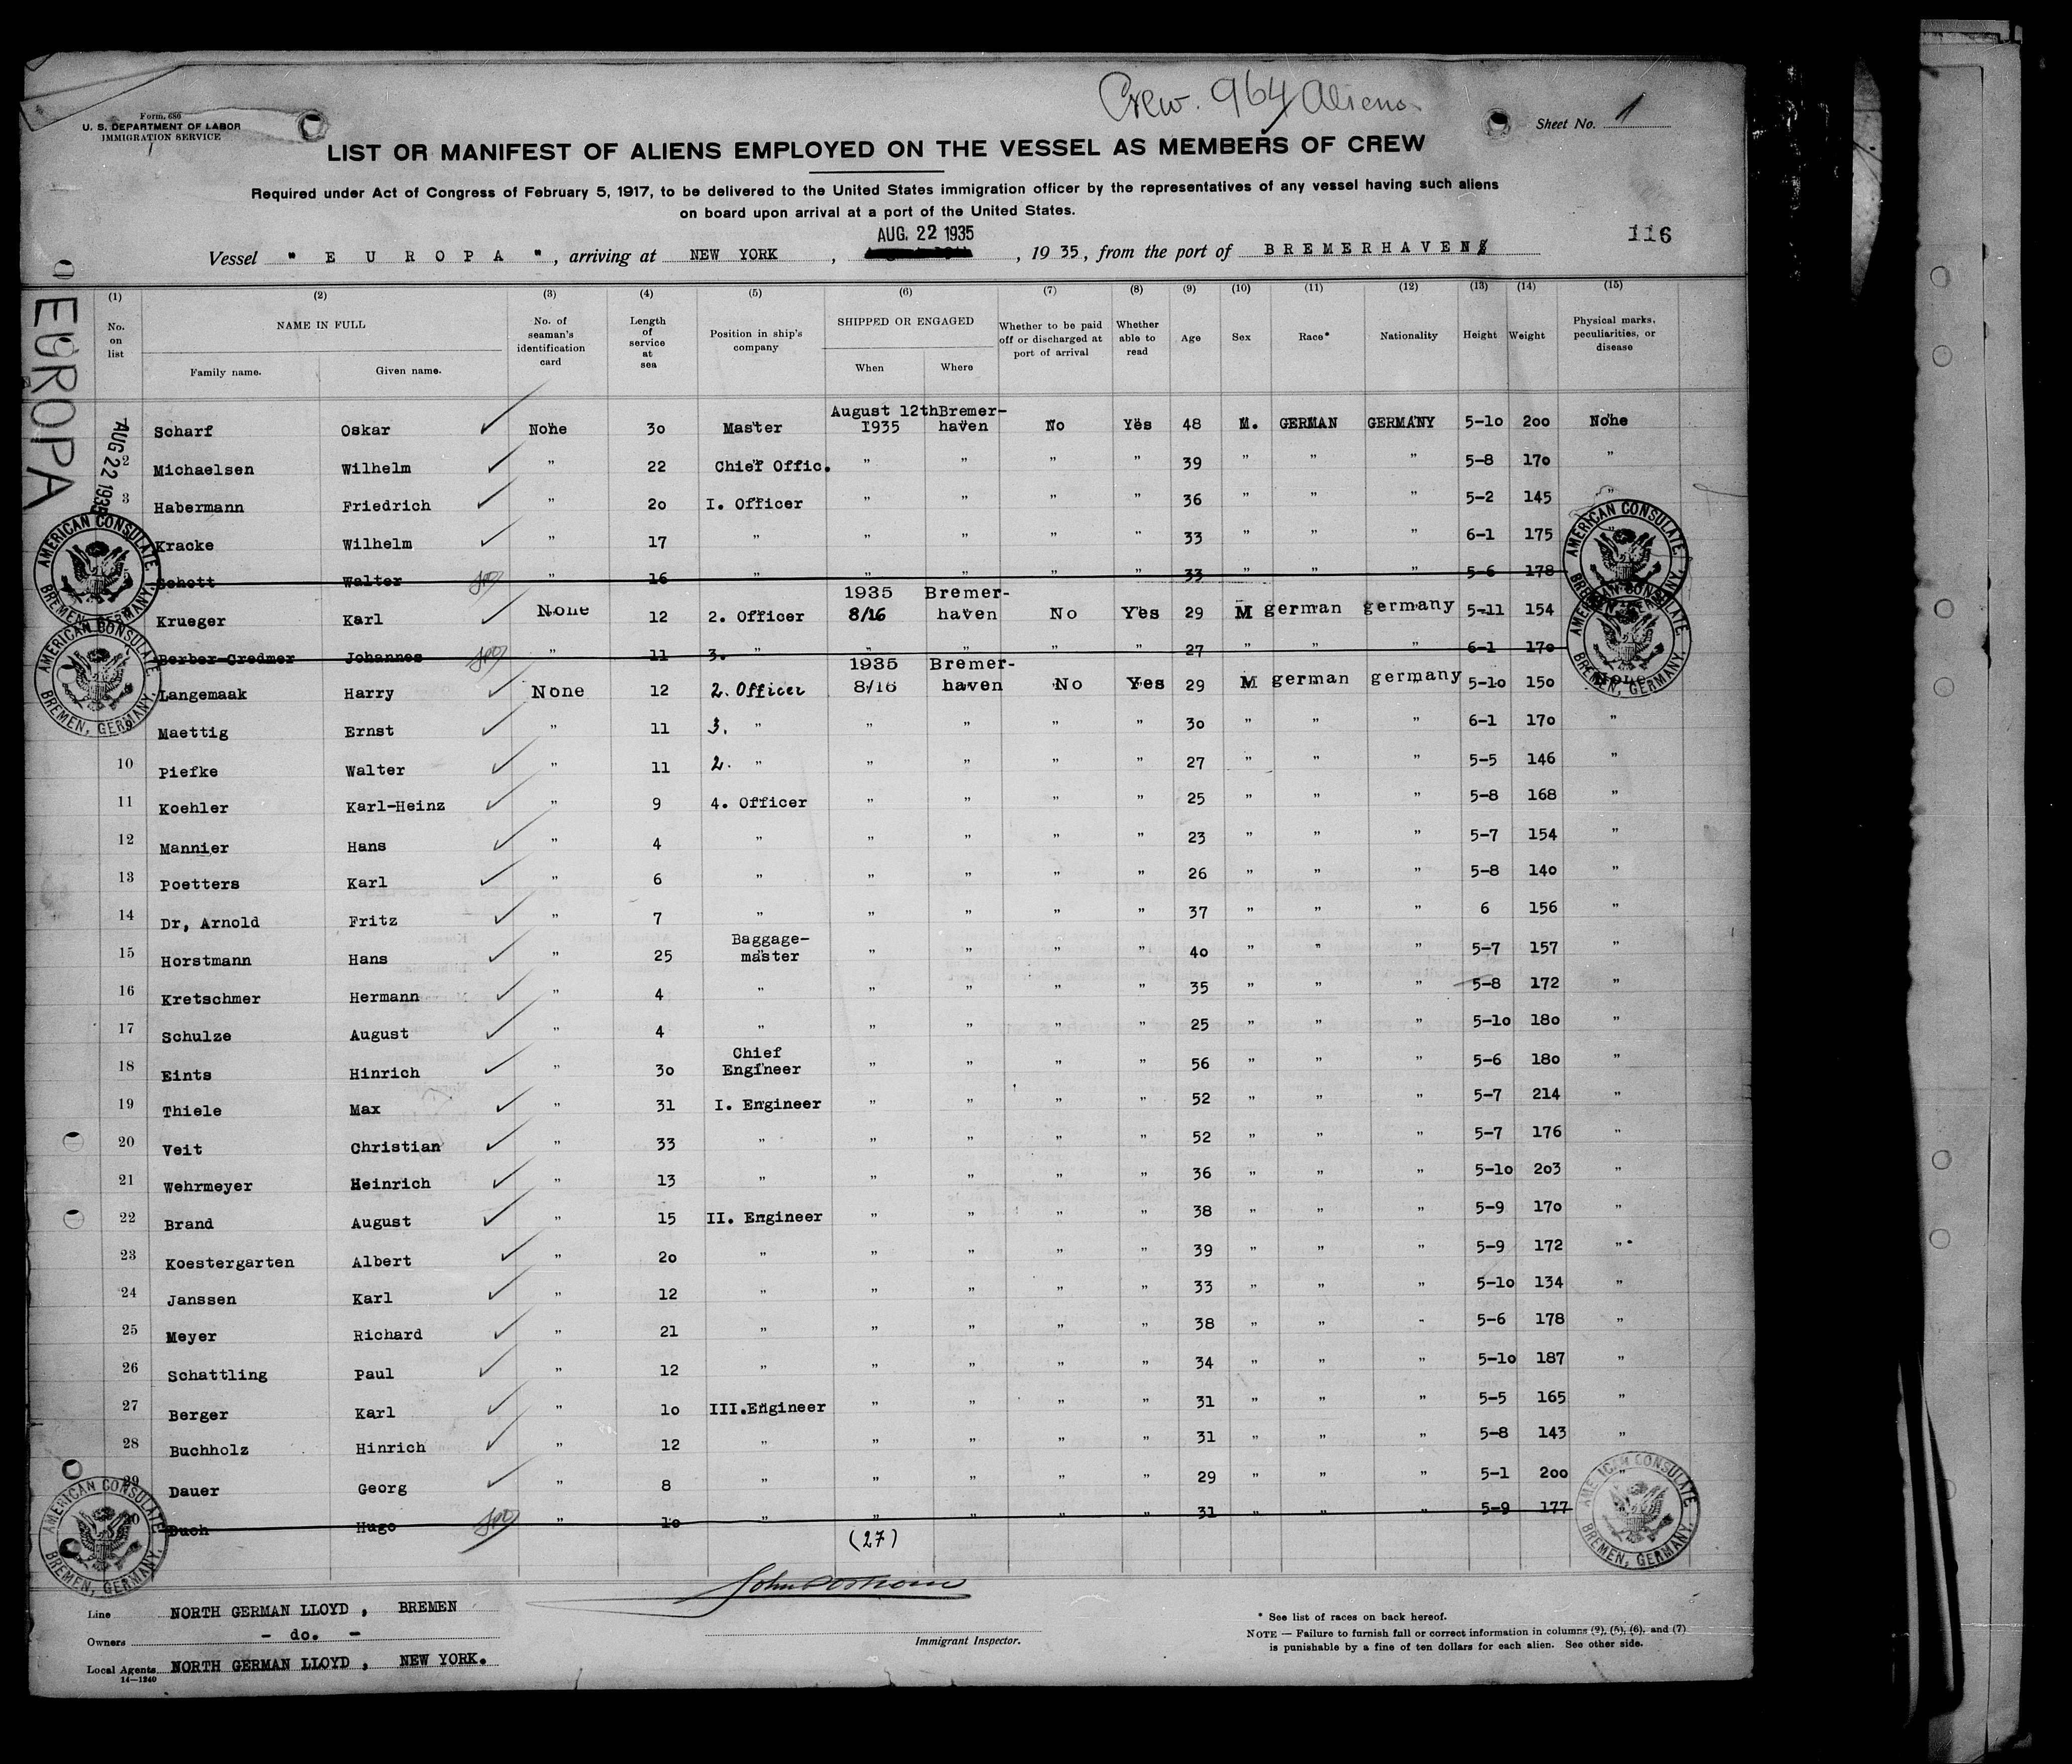 Crew. 964 Aliens
Form 686
U. S. DEPARTMENT OF LABOR
IMMIGRATION SERVICE
Sheet No. 1
LIST OR MANIFEST OF ALIENS EMPLOYED ON THE VESSEL AS MEMBERS OF CREW
Required under Act of Congress of February 5, 1917, to be delivered to the United States immigration officer by the representatives of any vessel having such aliens
on board upon arrival at a port of the United States.
AUG. 22 1935
116
Vessel " E U R O P A ", arriving at NEW YORK , , 19 35, from the port of BREMERHAVEN
EUROPA
AUG 22 1935
(1) (2) (3) (4) (5) (6) (7) (8) (9) (10) (11) (12) (13) (14) (15)
No. on list NAME IN FULL Family name. Given name. No. of seaman's identification card Length of service at sea Position in ship's company SHIPPED OR ENGAGED When Where Whether to be paid off or discharged at port of arrival Whether able to read Age Sex Race* Nationality Height Weight Physical marks, peculiarities, or disease
1 Scharf Oskar None 30 Master August 12th 1935 Bremer-haven No Yes 48 M. GERMAN GERMANY 5-10 200 None
2 Michaelsen Wilhelm " 22 Chief Offic. " " " " 39 " " " 5-8 170 "
3 Habermann Friedrich " 20 I. Officer " " " " 36 " " " 5-2 145 "
Kracke Wilhelm " 17 " " " " " 33 " " " 6-1 175 "
5 Schott Walter " 16 " " " " " 33 " " " 5-6 178
Krueger Karl None 12 2. Officer 1935 8/16 Bremer-haven No Yes 29 M german germany 5-11 154
Berber-Credner Johannes " 11 3. " " " " " 27 " " " 6-1 170
Langemaak Harry None 12 2. Officer 1935 8/16 Bremer-haven No Yes 29 M german germany 5-10 150 None
9 Maettig Ernst " 11 3. " " " " " 30 " " " 6-1 170 "
10 Piefke Walter " 11 2. " " " " " 27 " " " 5-5 146 "
11 Koehler Karl-Heinz " 9 4. Officer " " " " 25 " " " 5-8 168 "
12 Mannier Hans " 4 " " " " " 23 " " " 5-7 154 "
13 Poetters Karl " 6 " " " " " 26 " " " 5-8 140 "
14 Dr, Arnold Fritz " 7 " " " " " 37 " " " 6 156 "
15 Horstmann Hans " 25 Baggage-master " " " " 40 " " " 5-7 157 "
16 Kretschmer Hermann " 4 " " " " " 35 " " " 5-8 172 "
17 Schulze August " 4 " " " " " 25 " " " 5-10 180 "
18 Eints Hinrich " 30 Chief Engineer " " " " 56 " " " 5-6 180 "
19 Thiele Max " 31 I. Engineer " " " " 52 " " " 5-7 214 "
20 Veit Christian " 33 " " " " " 52 " " " 5-7 176 "
21 Wehrmeyer Heinrich " 13 " " " " " 36 " " " 5-10 203 "
22 Brand August " 15 II. Engineer " " " " 38 " " " 5-9 170 "
23 Koestergarten Albert " 20 " " " " " 39 " " " 5-9 172 "
24 Janssen Karl " 12 " " " " " 33 " " " 5-10 134 "
25 Meyer Richard " 21 " " " " " 38 " " " 5-6 178 "
26 Schattling Paul " 12 " " " " " 34 " " " 5-10 187 "
27 Berger Karl " 10 III.Engineer " " " " 31 " " " 5-5 165 "
28 Buchholz Hinrich " 12 " " " " " 31 " " " 5-8 143 "
29 Dauer Georg " 8 " " " " " 29 " " " 5-1 200 "
30 Duch Hugo " 10 " " " " " 31 " " " 5-9 177
(27)
AMERICAN CONSULATE, BREMEN, GERMANY.
AMERICAN CONSULATE, BREMEN, GERMANY.
AMERICAN CONSULATE, BREMEN, GERMANY.
AMERICAN CONSULATE, BREMEN, GERMANY.
AMERICAN CONSULATE, BREMEN, GERMANY.
AMERICAN CONSULATE, BREMEN, GERMANY.
Line NORTH GERMAN LLOYD , BREMEN
Owners - do. -
Local Agents NORTH GERMAN LLOYD , NEW YORK.
14—1240
Immigrant Inspector.
* See list of races on back hereof.
NOTE — Failure to furnish full or correct information in columns (2), (5), (6), and (7)
is punishable by a fine of ten dollars for each alien. See other side.